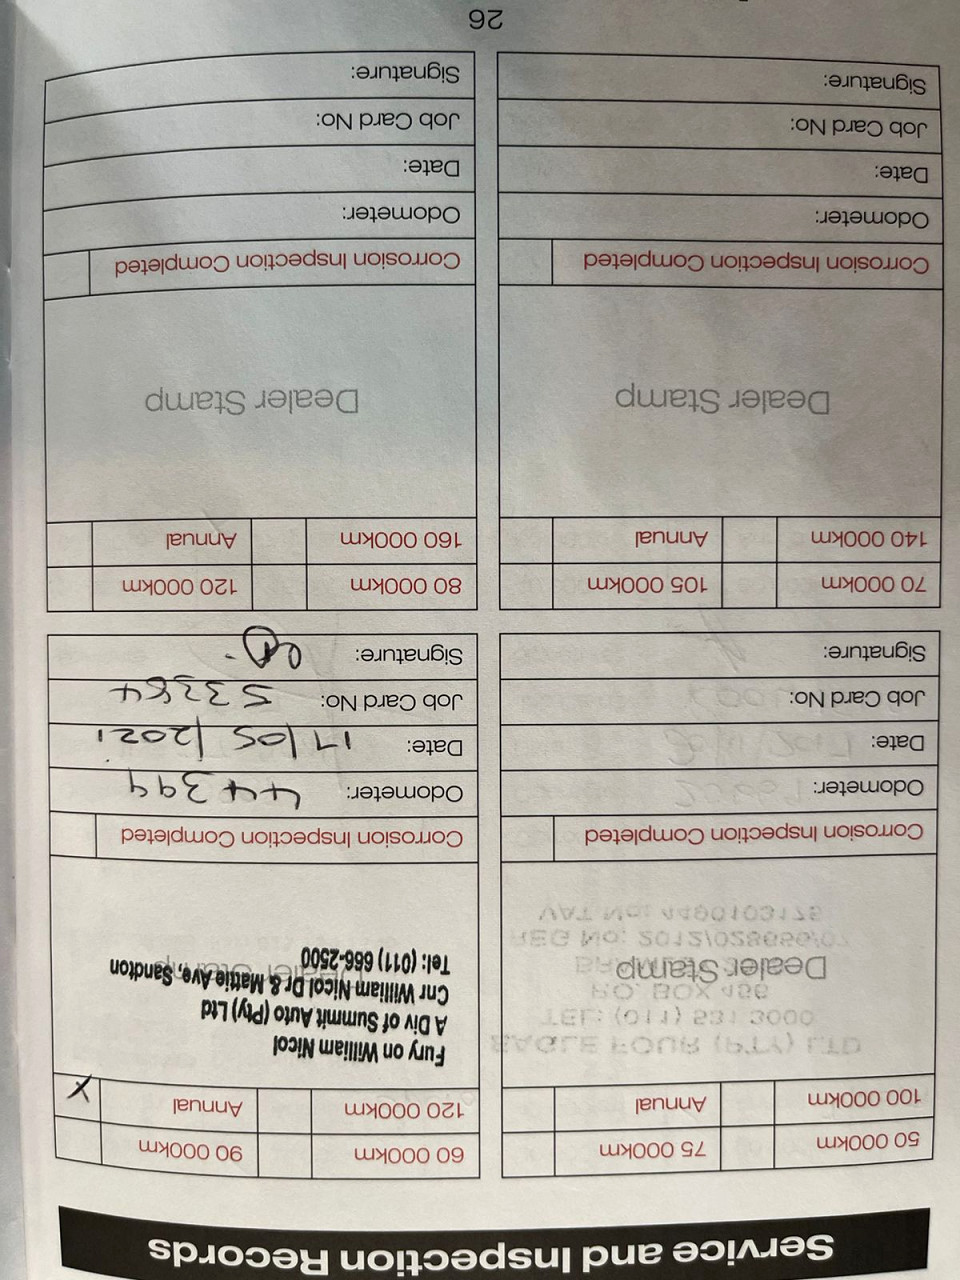 Service and Inspection Records
50 000km 75 000km
100 000km Annual
Dealer Stamp
Corrosion Inspection Completed
Odometer:
Date:
Job Card No:
Signature:
60 000km 90 000km
120 000km Annual X
Fury on William Nicol
A Div of Summit Auto (Pty) Ltd
Cnr William Nicol Dr & Mattie Ave, Sandton
Dealer Stamp
Tel: (011) 666-2500
Corrosion Inspection Completed
Odometer: 44399
Date: 17/05/2021
Job Card No: 53384
Signature:
70 000km 105 000km
140 000km Annual
Dealer Stamp
Corrosion Inspection Completed
Odometer:
Date:
Job Card No:
Signature:
80 000km 120 000km
160 000km Annual
Dealer Stamp
Corrosion Inspection Completed
Odometer:
Date:
Job Card No:
Signature:
26